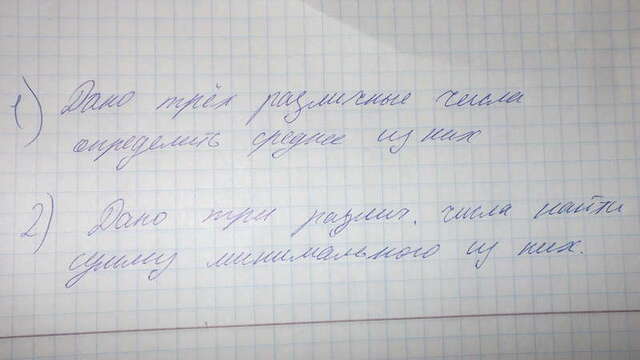 1) Дано трёх различные числа
определить среднее из них
2) Дано три различ. числа найти
сумму минимального из них.